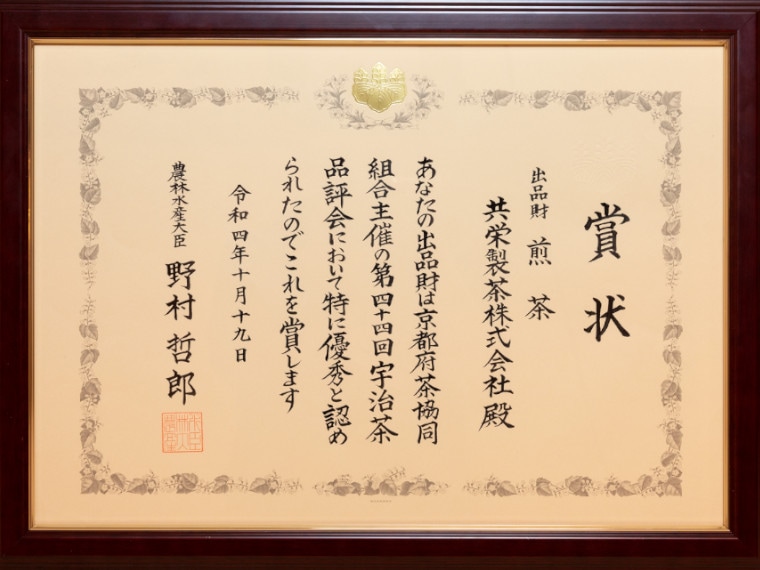 賞状
出品財 煎茶
共栄製茶株式会社殿
あなたの出品財は京都府茶協同
組合主催の第四十四回宇治茶
品評会において特に優秀と認め
られたのでこれを賞します
令和四年十月十九日
農林水産大臣 野村哲郎